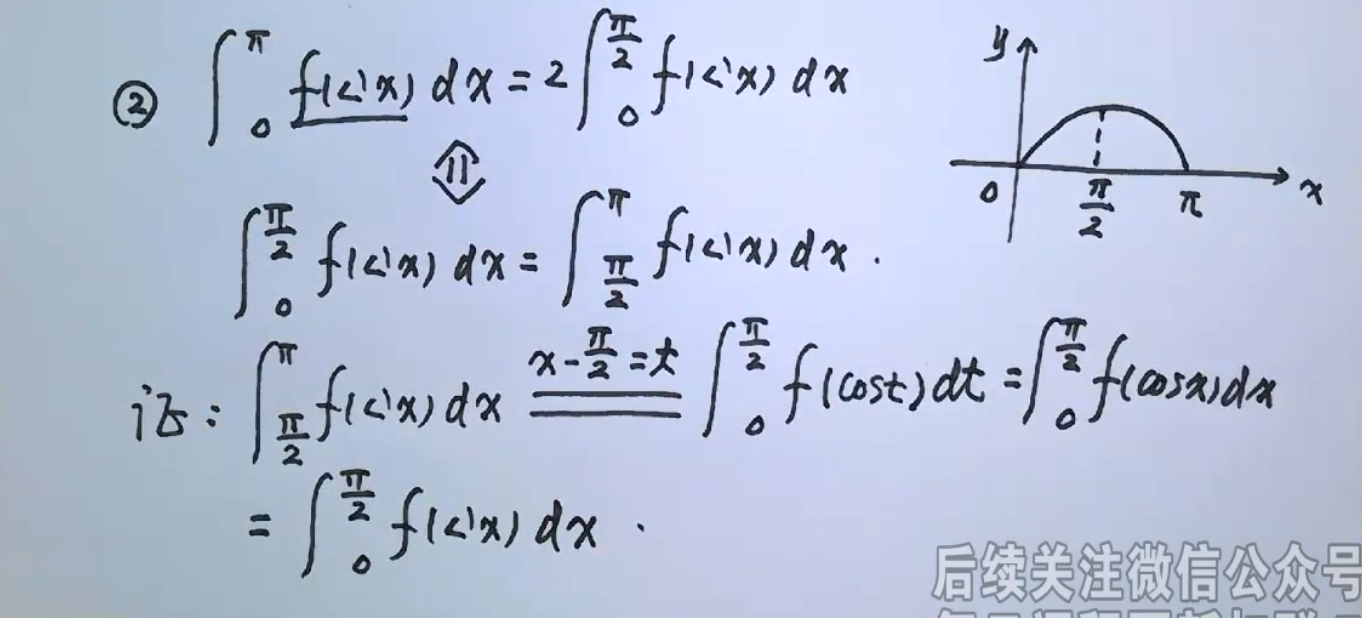 ② ∫₀^π f(sin x) dx = 2∫₀^(π/2) f(sin x) dx
⇕
∫₀^(π/2) f(sin x) dx = ∫_(π/2)^π f(sin x) dx .
证: ∫_(π/2)^π f(sin x) dx x-π/2=t ∫₀^(π/2) f(cost) dt = ∫₀^(π/2) f(cosx) dx
= ∫₀^(π/2) f(sin x) dx .
y
0 π/2 π x
后续关注微信公众号